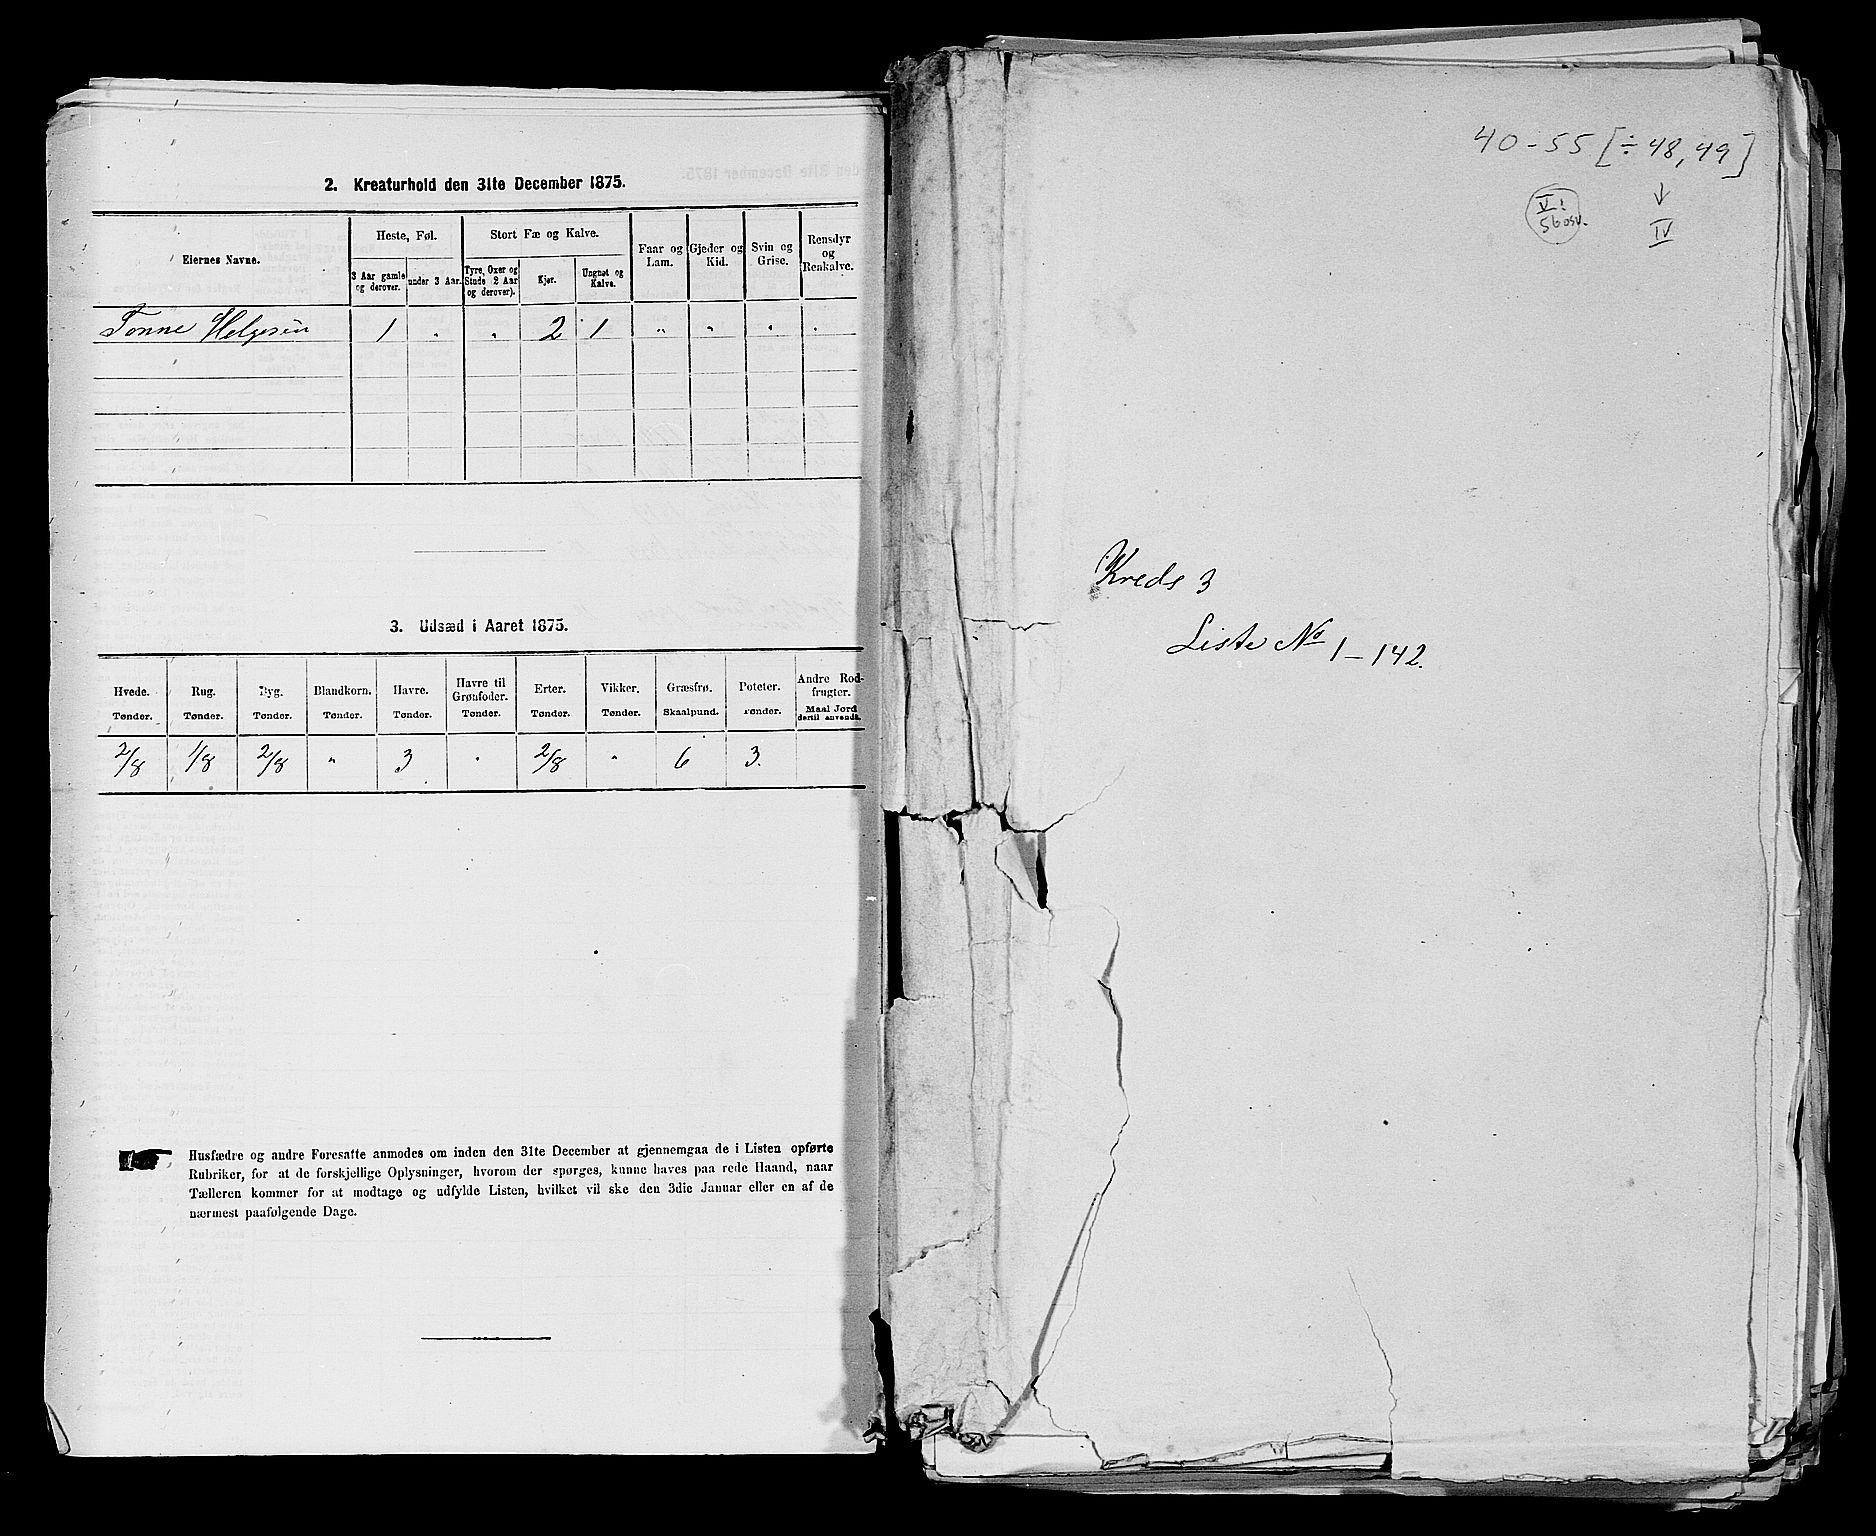 2. Kreaturhold den 31te December 1875.
Eiernes Navne.
Heste, Føl.
Stort Fæ og Kalve.
Faar og Lam.
Gjeder og Kid.
Svin og Grise.
Rensdyr og Renkalve.
3 Aar gamle og derover.
under 3 Aar.
Tyre, Oxer og Stude 2 Aar og derover).
Kjør.
Ungnøt og Kalve.
Tonne Helgesen 1 " " 2 1 " " " "
3. Udsæd i Aaret 1875.
Hvede. Rug. Byg. Blandkorn. Havre. Havre til Grønfoder. Erter. Vikker. Græsfrø. Poteter. Andre Rodfrugter.
Tønder. Tønder. Tønder. Tønder. Tønder. Tønder. Tønder. Tønder. Skaalpund. Tønder. Maal Jord dertil anvendt.
2/8 1/8 2/8 " 3 " 2/8 " 6 3.
Husfædre og andre Foresatte anmodes om inden den 31te December at gjennemgaa de i Listen opførte
Rubriker, for at de forskjellige Oplysninger, hvorom der spørges, kunne haves paa rede Haand, naar
Tælleren kommer for at modtage og udfylde Listen, hvilket vil ske den 3die Januar eller en af de
nærmest paafølgende Dage.
40-55 [÷48, 49]
V!
56 osv.
↓
IV
Kreds 3
Liste No 1-142.